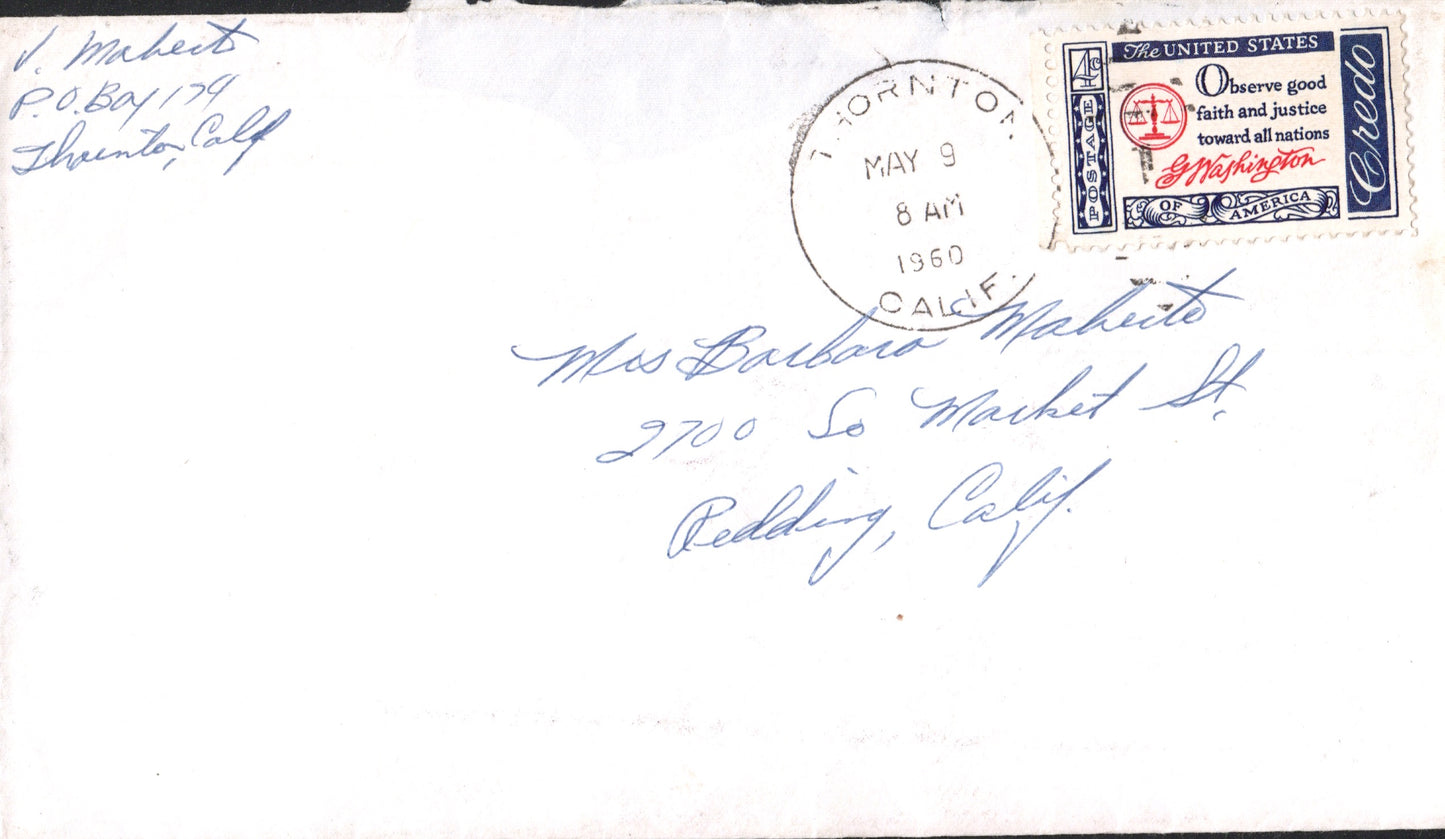 P.O. Box 174
Thornton, Calif
THORNTON
MAY 9
8 AM
1960
CALIF.
4c
POSTAGE
The UNITED STATES
OF AMERICA
Observe good
faith and justice
toward all nations
G Washington
Credo
Mrs Barbara
2700 So Market St.
Redding, Calif.